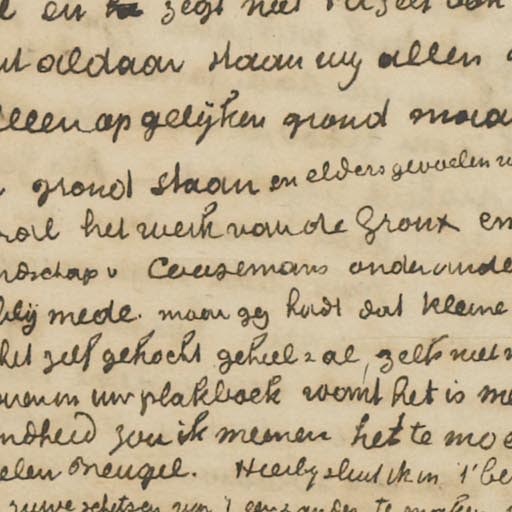 en zegt niet
aldaar staan wij allen
alleen op gelijken grond maar
grond staan en elders gevoelen
het werk van de Groux en
landschap v Ceusemans onder ande
blij mede. maar gij hadt dat kleine
het zelf gekocht geheel = al, zelfs niet
in uw plakboek want het is me
zou ik meenen het te mo
elen Breugel. Hierbij sluit ik in 't be
ruwe schetsen van 't een & ander te maken